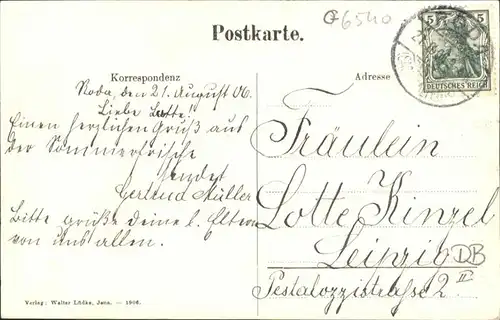 G6540
Postkarte.
5 5
DEUTSCHES REICH
Korrespondenz
Adresse
Roda, den 21. August 06.
Liebe Lotte!
Einen herzlichen Gruß aus
der Sommerfrische
sendet
Gertrud Müller
Bitte grüße deine l. Eltern
von uns allen.
Fräulein
Lotte Kinzel
Leipzig
DB
Pestalozzistraße 2 II
Verlag: Walter Lüdke, Jena. — 1906.